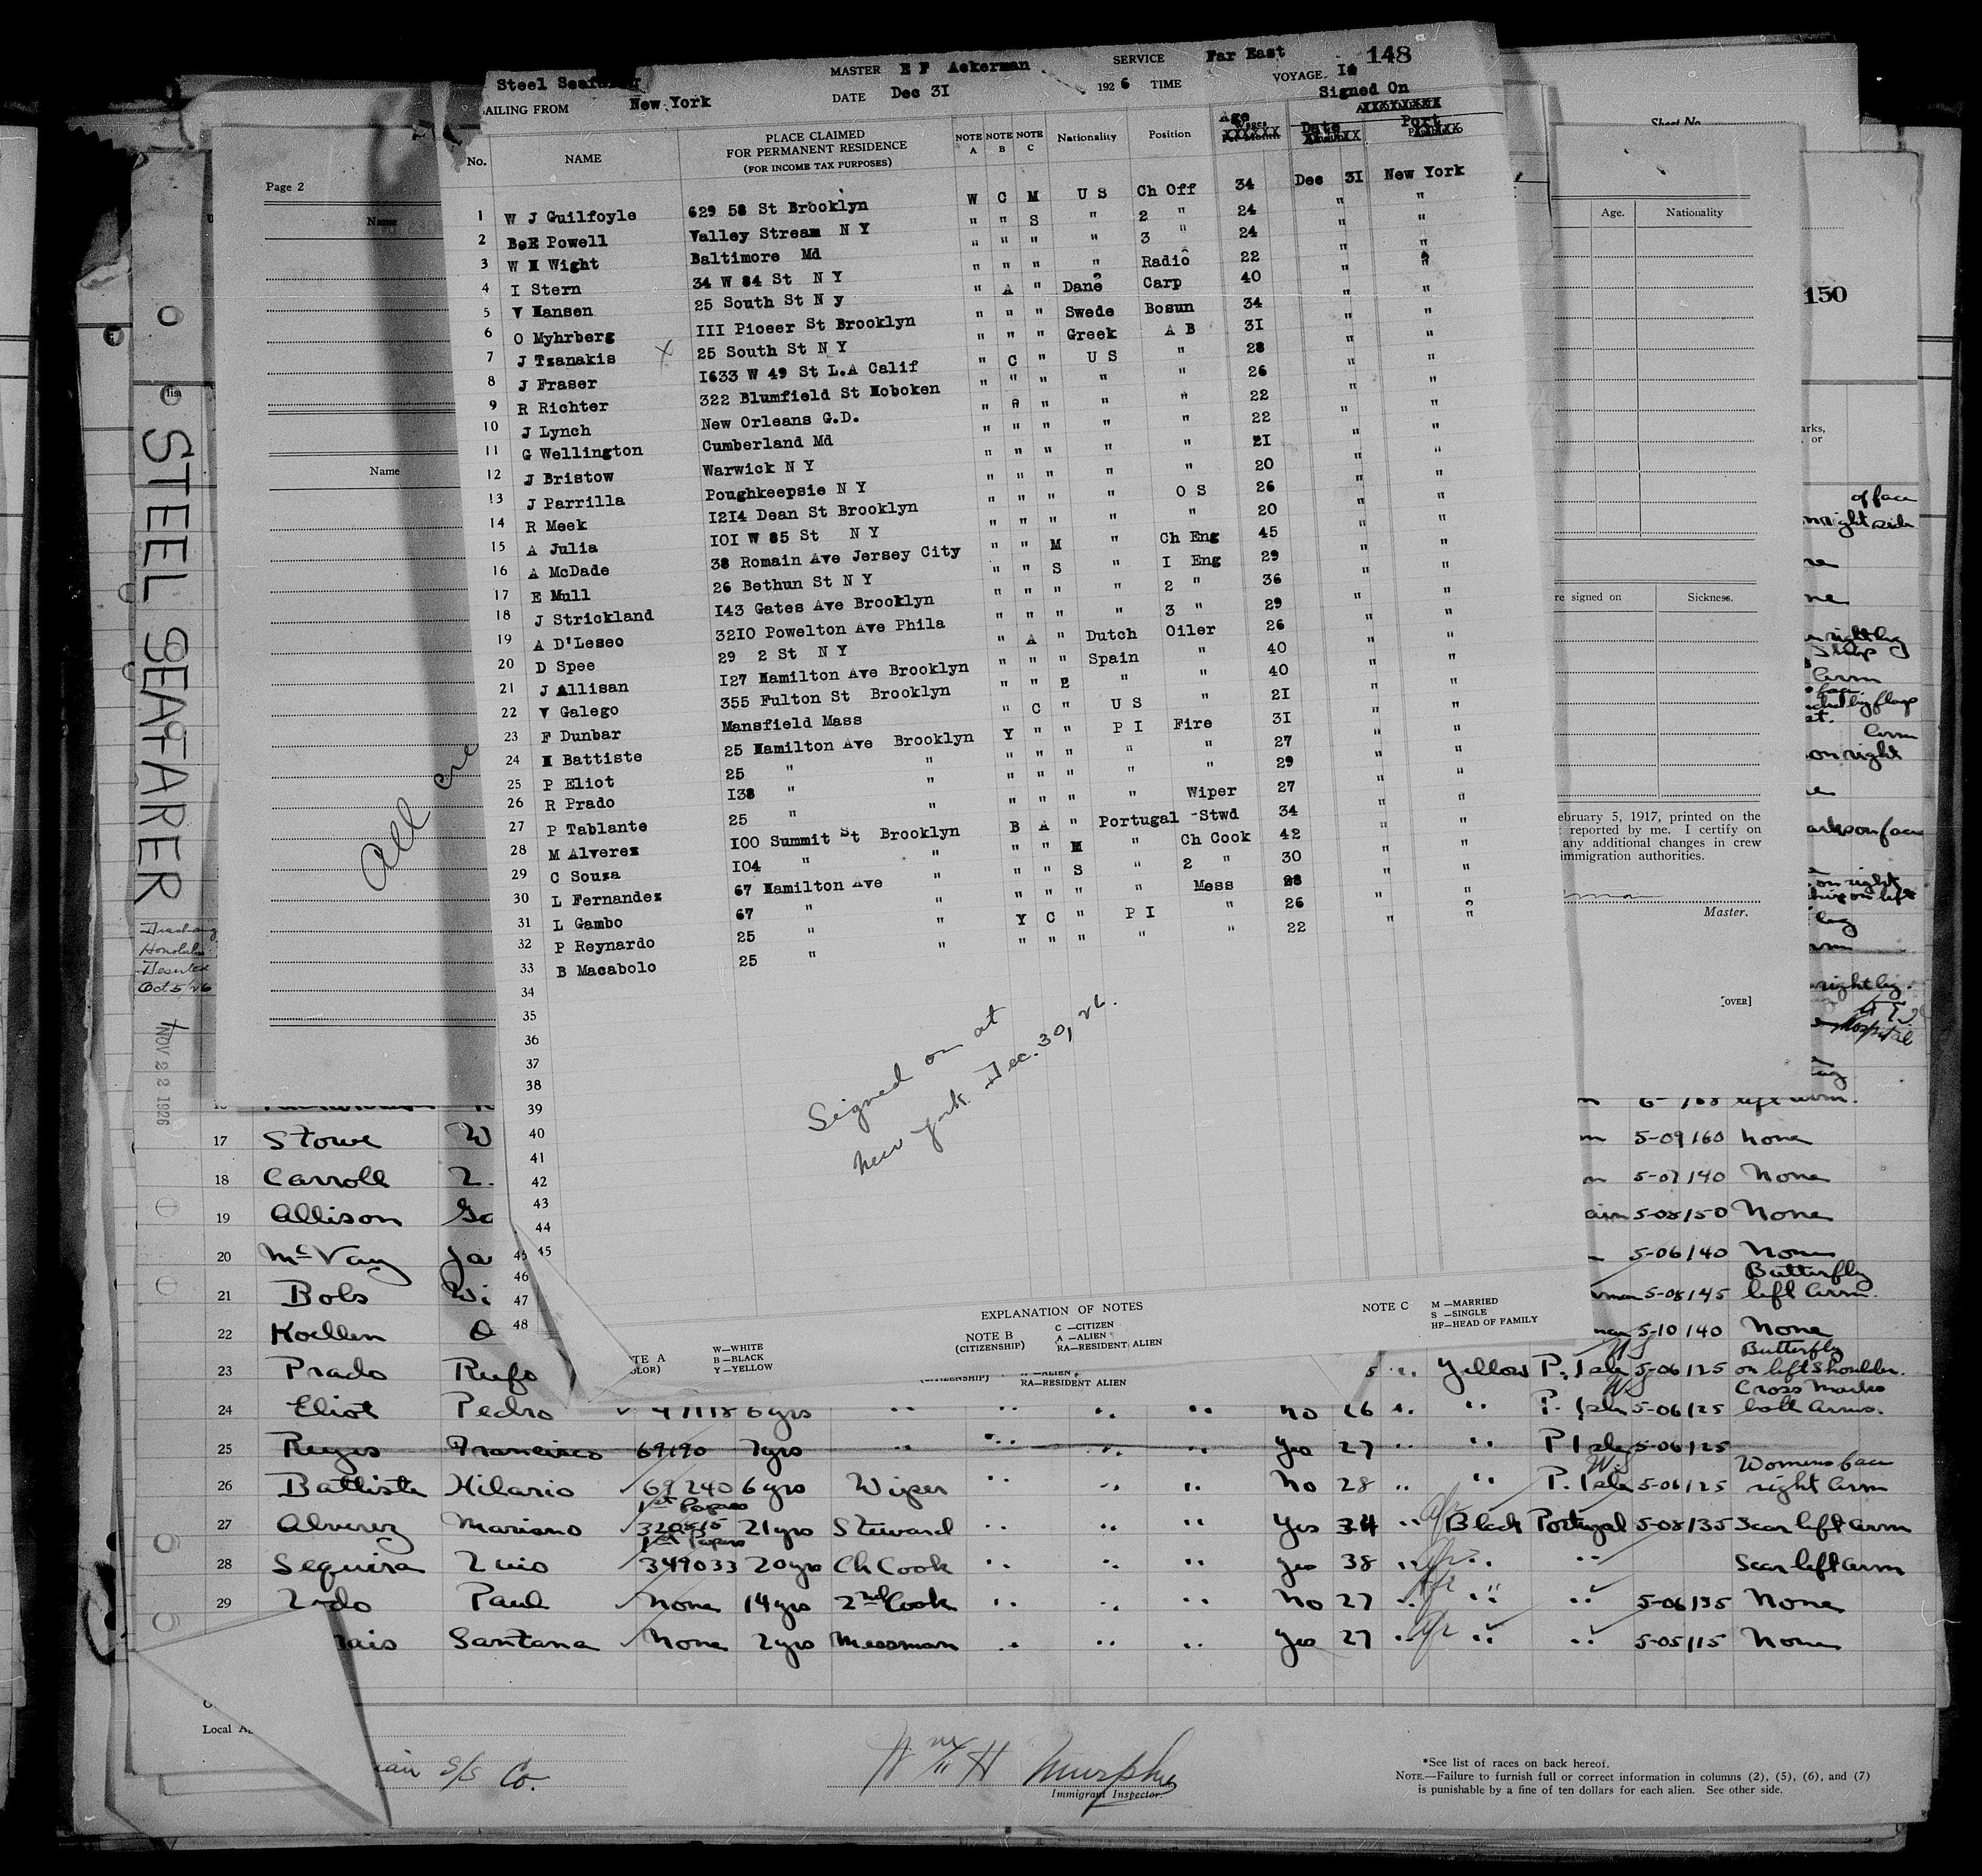 148
Steel Seafarer MASTER E F Ackerman SERVICE Far East VOYAGE
AILING FROM New York DATE Dec 31 1926 TIME Signed On
No. NAME PLACE CLAIMED FOR PERMANENT RESIDENCE (FOR INCOME TAX PURPOSES) NOTE A NOTE B NOTE C Nationality Position Age Date Port
1 W J Guilfoyle 629 58 St Brooklyn W C M U S Ch Off 34 Dec 31 New York
2 B E Powell Valley Stream N Y " " S " 2 " 24 " "
3 W H Wight Baltimore Md " " " " 3 " 24 " "
4 I Stern 34 W 84 St N Y " " " " Radio 22 " "
5 V Hansen 25 South St N y " A " Dane Carp 40 " "
6 O Myhrberg III Pioeer St Brooklyn " " " Swede Bosun 34 " "
7 J Tzanakis X 25 South St N Y " " " Greek A B 31 " "
8 J Fraser I633 W 49 St L.A Calif " C " U S " 28 " "
9 R Richter 322 Blumfield St Hoboken " " " " " 26 " "
10 J Lynch New Orleans G.D. " " " " 22 " "
11 G Wellington Cumberland Md " " " " " 22 " "
12 J Bristow Warwick N Y " " " " " 21 " "
13 J Parrilla Poughkeepsie N Y " " " " " 20 " "
14 R Meek I2I4 Dean St Brooklyn " " " " O S 26 " "
15 A Julia IOI W 85 St N Y " " " " " 20 " "
16 A McDade 38 Romain Ave Jersey City " " M " Ch Eng 45 " "
17 E Mull 26 Bethun St N Y " " S " I Eng 29 " "
18 J Strickland I43 Gates Ave Brooklyn " " " " 2 " 36 " "
19 A D'Leseo 32IO Powelton Ave Phila " " " " 3 " 29 " "
20 D Spee 29 2 St N Y " A " Dutch Oiler 26 " "
21 J Allisan I27 Hamilton Ave Brooklyn " " " Spain " 40 " "
22 V Galego 355 Fulton St Brooklyn " " " " 40 " "
23 F Dunbar Mansfield Mass " C " U S " 21 " "
24 H Battiste 25 Hamilton Ave Brooklyn Y " " P I Fire 31 " "
25 P Eliot 25 " " " " " " " 27 " "
26 R Prado I38 " " " " " " " 29 " "
27 P Tablante 25 " " " " " " Wiper 27 " "
28 M Alverez I00 Summit St Brooklyn B A " Portugal -Stwd 34 " "
29 C Souza I04 " " " " M " Ch Cook 42 " "
30 L Fernandez 67 Hamilton Ave " " " S " 2 " 30 " "
31 L Gambo 67 " " " " " " Mess 28 " "
32 P Reynardo 25 " " Y C " P I " 26 " "
33 B Macabolo 25 " " " " " " " 22 " "
34
35
36
37
38
39
40
41
42
43
44
45
46
47
48
Signed on at
New York Dec. 30, 26.
EXPLANATION OF NOTES
W—WHITE
B—BLACK
Y—YELLOW
NOTE B (CITIZENSHIP)
C —CITIZEN
A —ALIEN
RA—RESIDENT ALIEN
NOTE C
M —MARRIED
S —SINGLE
HF—HEAD OF FAMILY
RA—RESIDENT ALIEN
Page 2
Name
Name
All
STEEL SEAFARER
Honolulu
Deserted
Oct 5/26
NOV 22 1926
Sheet No.
150
Age. Nationality
re signed on Sickness.
ebruary 5, 1917, printed on the
reported by me. I certify on
any additional changes in crew
immigration authorities.
Master.
[OVER]
17 Stowe W 5-09 160 None
18 Carroll 5-07 140 None
19 Allison 5-08 150 None
20 McVay Ja 5-06 140 None
21 Bols Wi 5-08 145 Butterfly left arm.
22 Koellen O 5-10 140 None
23 Prado Rufo Yellow P. Isle 5-06 125 Butterfly on left shoulder.
24 Eliot Pedro 6 yrs " " " " No 26 " " P. Isle 5-06 125 Cross Marks both arms.
25 Reyes Francisco 69190 7 yrs " " " " Yes 27 " " P Isle 5-06 125
26 Battiste Hilario 69240 6 yrs Wiper " " " No 28 " " P. Isle 5-06 125 Womens face right arm
27 Alverez Mariano 320515 21 yrs Steward " " " Yes 34 " Black Portugal 5-08 135 Scar left arm
28 Sequira Luis 349033 20 yrs Ch Cook " " " Yes 38 " " " Scar left arm
29 Paul None 14 yrs 2nd Cook " " " No 27 " " " 5-06 135 None
Santana None 2 yrs Messman " " " Yes 27 " " " 5-05 115 None
S/S Co.
Wm H Murphy
Immigrant Inspector.
*See list of races on back hereof.
NOTE.—Failure to furnish full or correct information in columns (2), (5), (6), and (7)
is punishable by a fine of ten dollars for each alien. See other side.